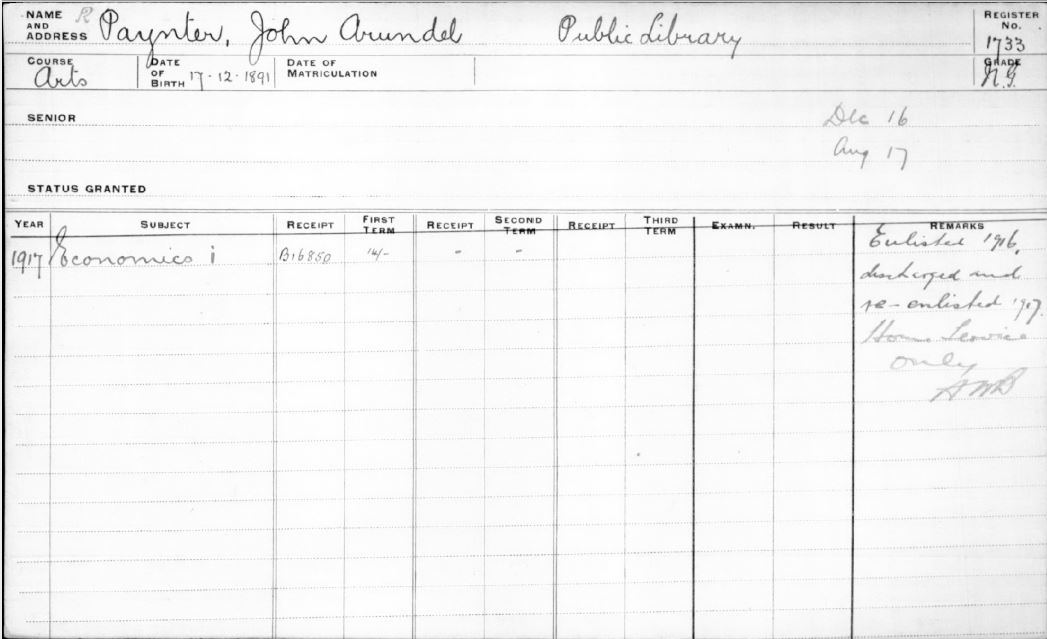 NAME AND ADDRESS R Paynter, John Arundel Public Library REGISTER No. 1733
COURSE Arts DATE OF BIRTH 17·12·1891 DATE OF MATRICULATION GRADE N.G.
SENIOR
Dec 16
Aug 17
STATUS GRANTED
YEAR SUBJECT RECEIPT FIRST TERM RECEIPT SECOND TERM RECEIPT THIRD TERM EXAMN. RESULT REMARKS
1917 Economics i B16850 14/- - - Enlisted 1916,
discharged and
re-enlisted 1917.
Home Service
only